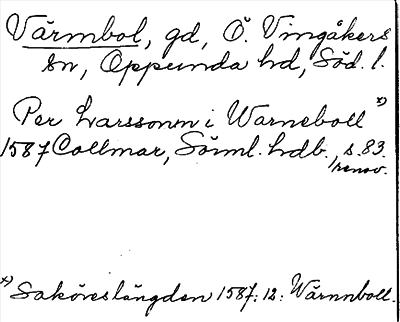 Värmbol, gd, Ö. Vingåkers
sn, Oppunda hd, Söd. l.
Per Larssonn i Warneboll x)
1587 Collmar, Sörml. hdb. s. 83.
/renov.
x) Saköreslängden 1587:12: Wärnnboll.